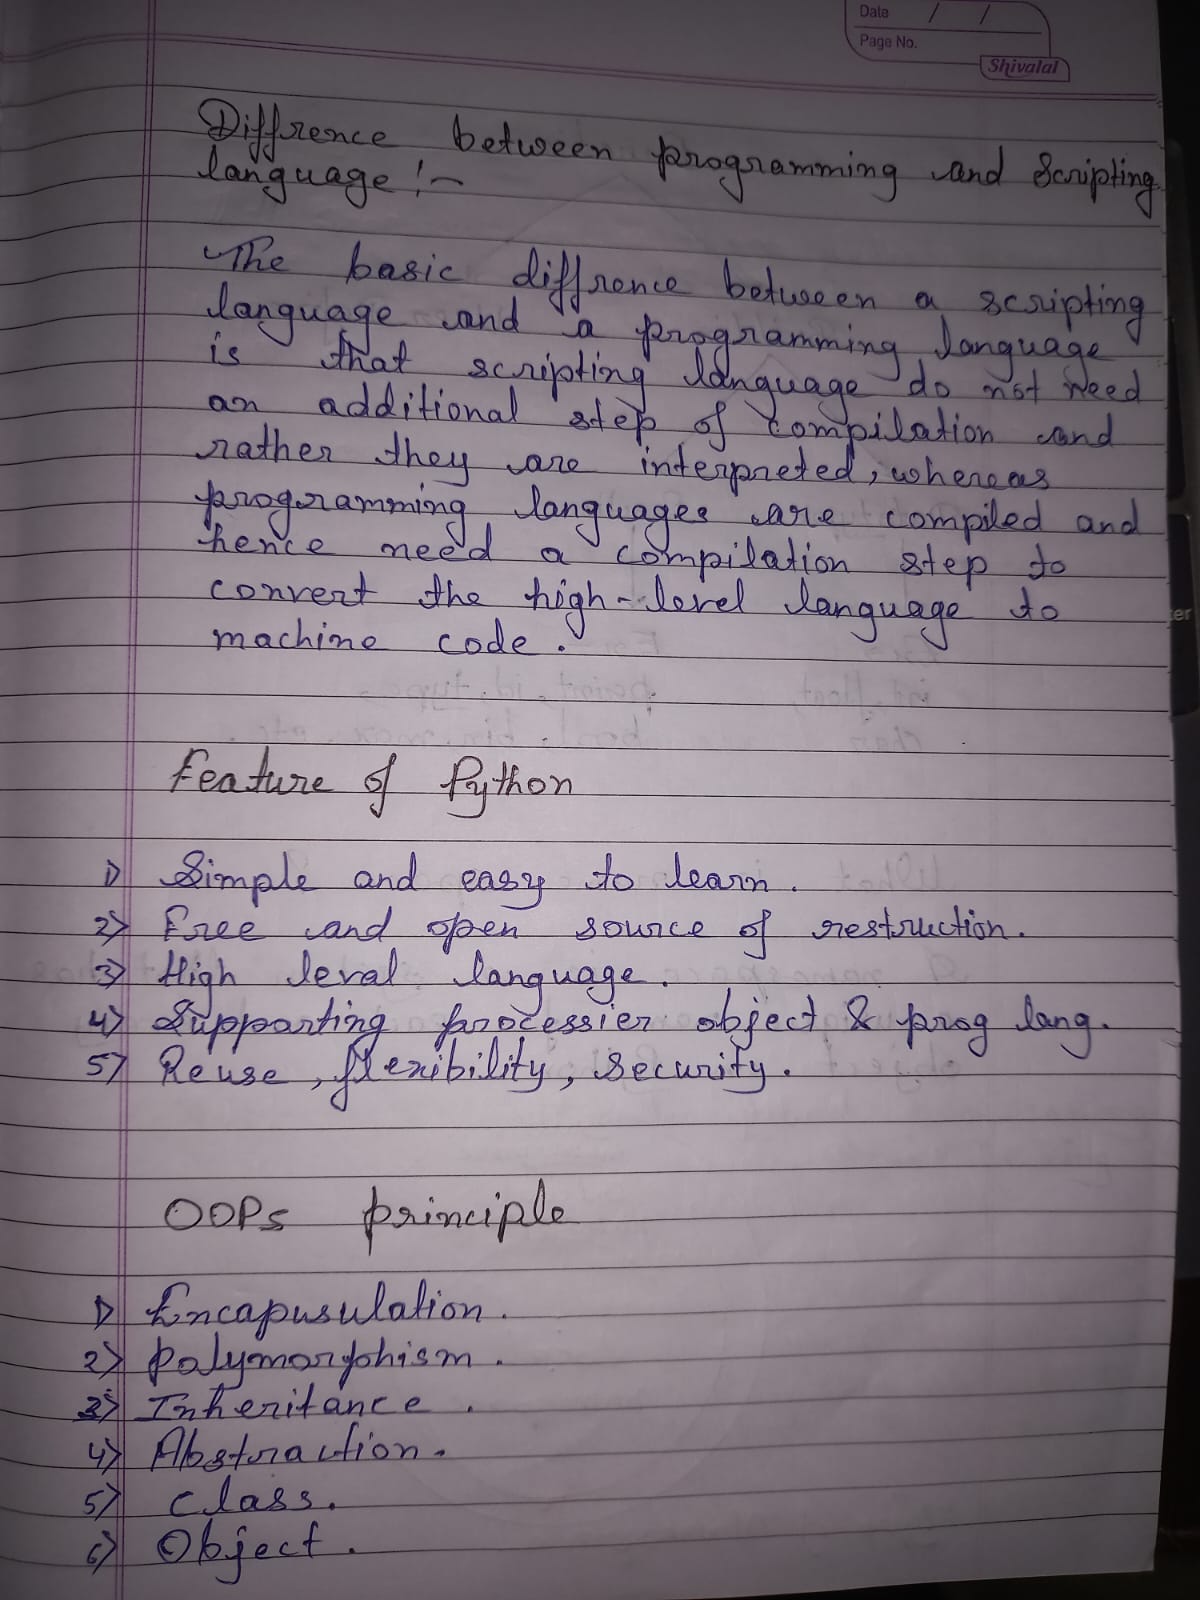 Date / /
Page No.
Shivalal
Diffrence between programming and Scripting
language :-
The basic diffrence between a scripting
language and a programming language
is that scripting language do not need
an additional step of compilation and
rather they are interpreted, whereas
programming languages are compiled and
hence need a compilation step to
convert the high-level language to
machine code.
Feature of Python
1) Simple and easy to learn.
2) Free and open source of restruction.
3) High leval language.
4) Supparting processier object & prog lang.
5) Reuse, flexibility, security.
OOPs principle
1) Encapusulation.
2) Polymorphism.
3) Inheritance.
4) Abstraction.
5) Class.
6) Object.